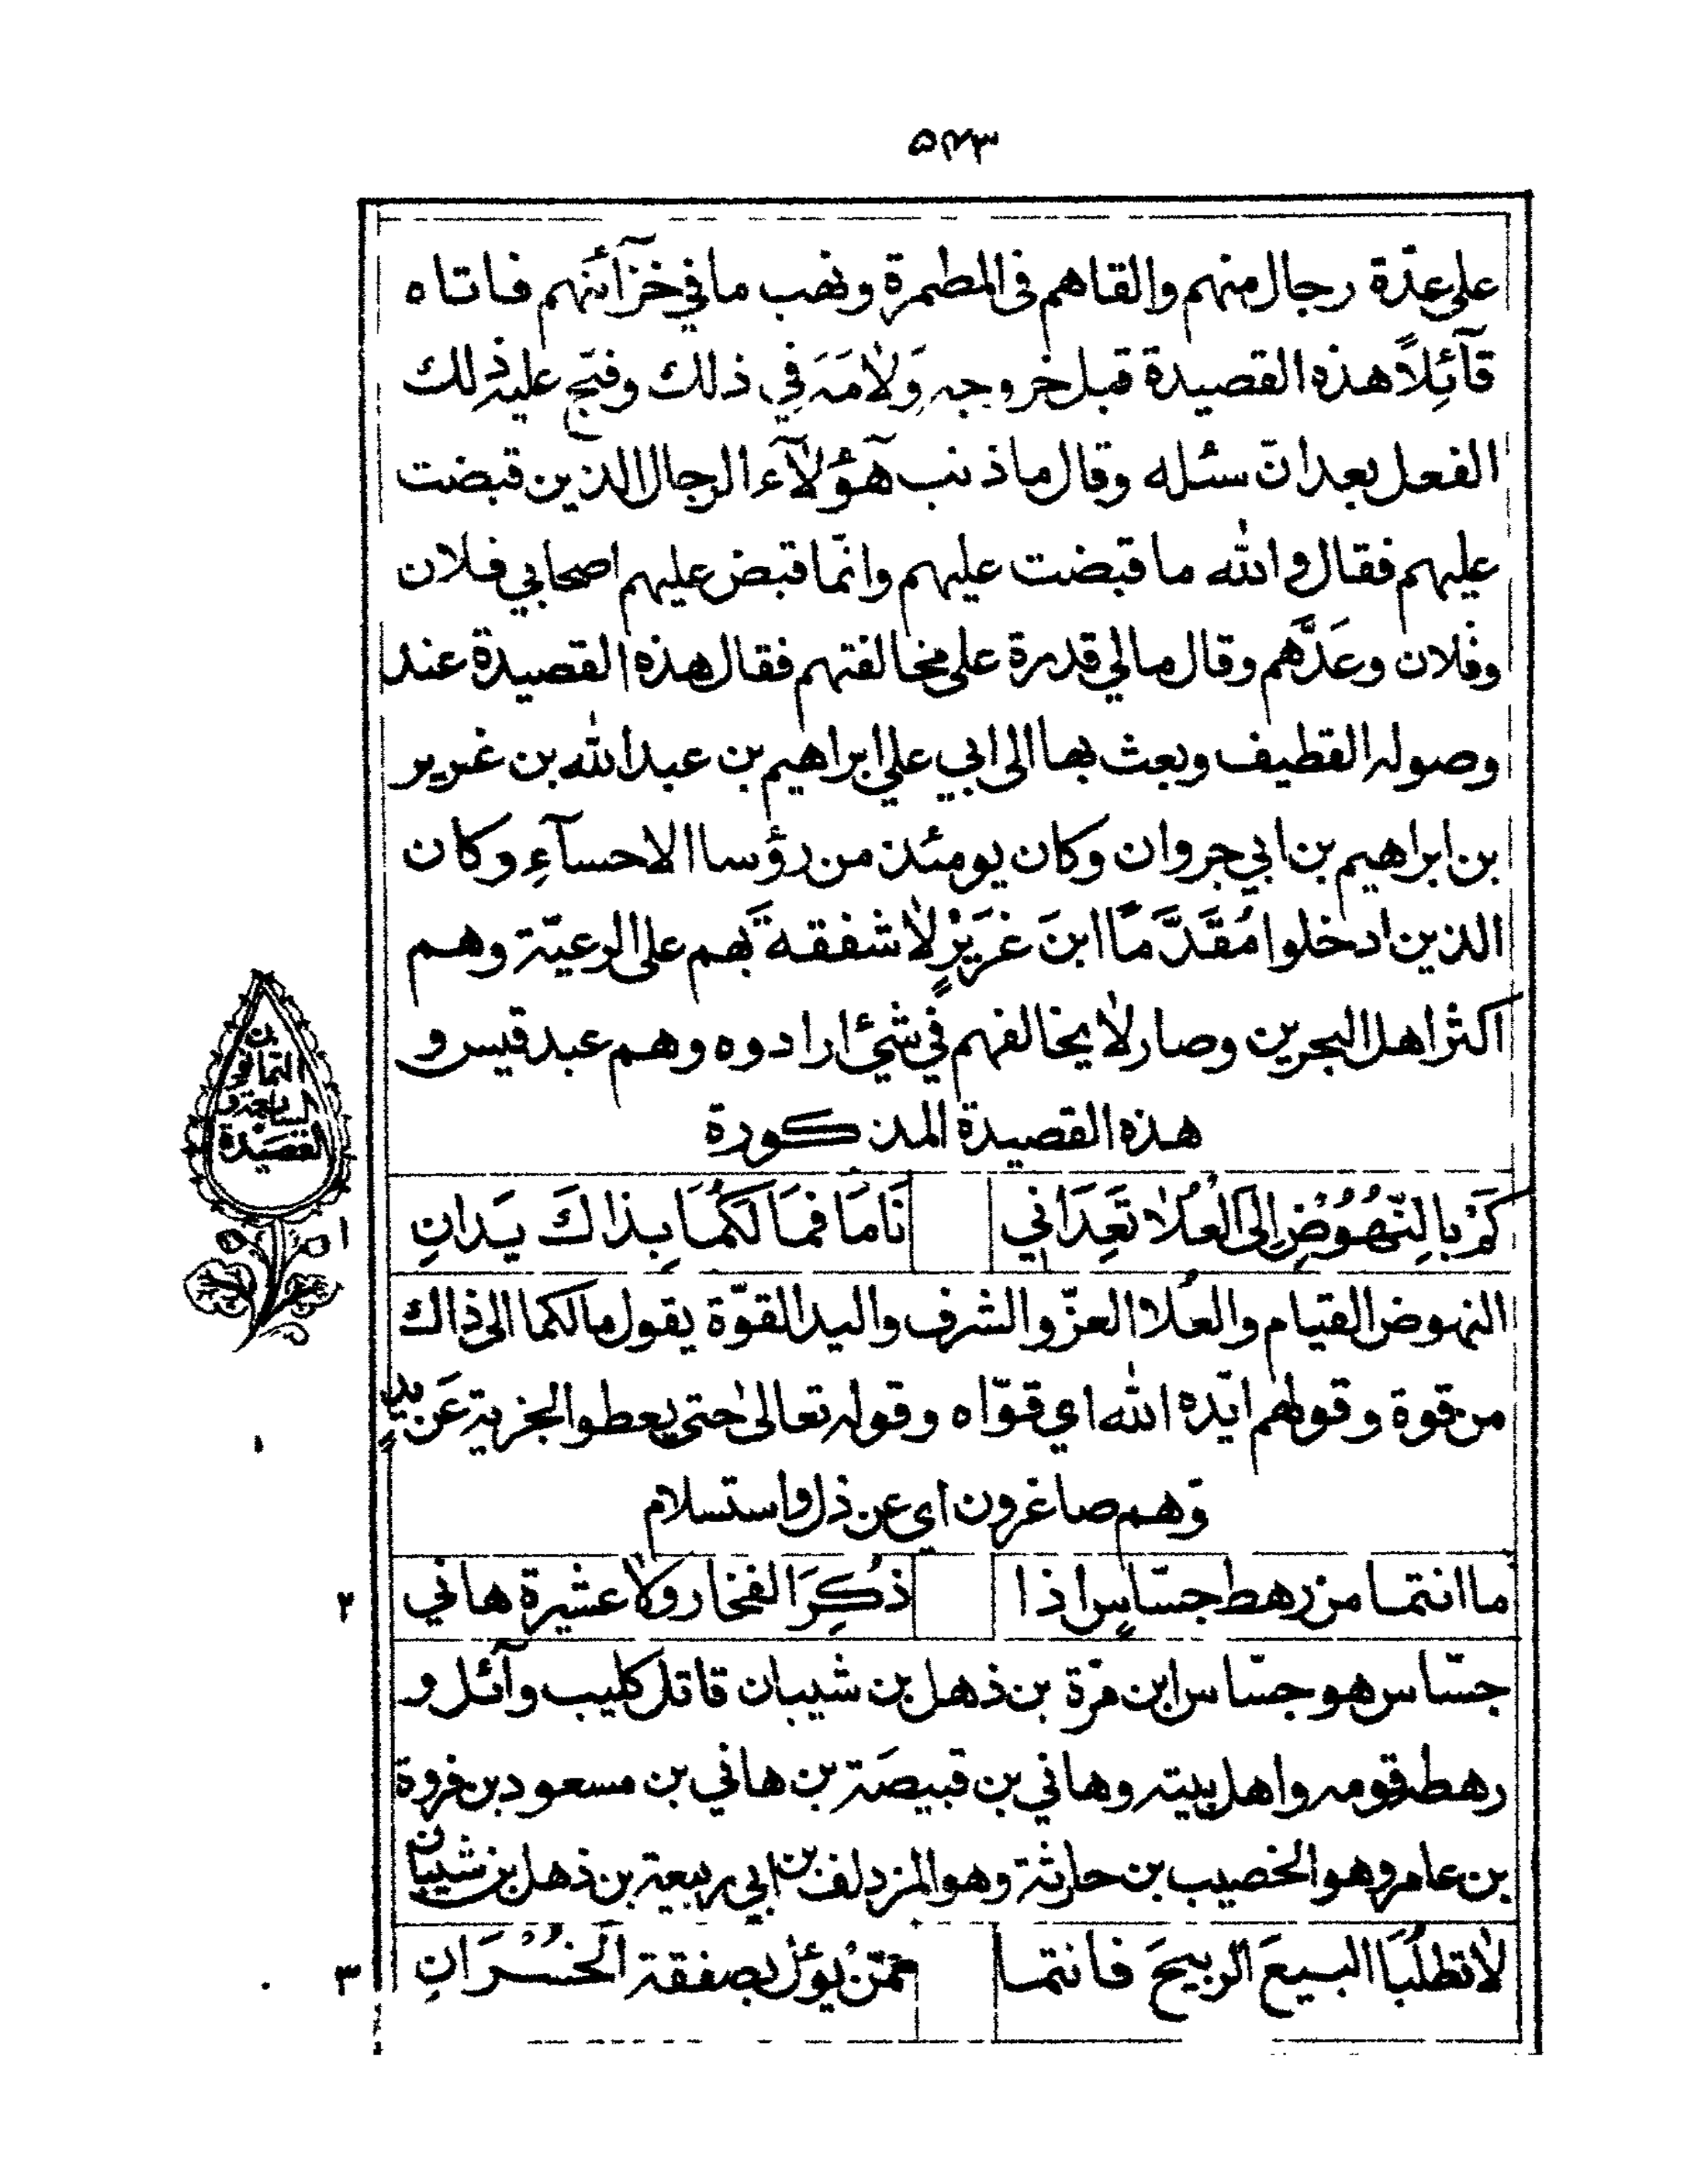 ٥٤٣
على عدّة رجال منهم والقاهم فى المطمرة ونهب ما في خزآئنهم فاتاه
قآئِلاً هذه القصيدة قبل خروجه وَلَامَهَ فِي ذلك وقبّح عليه ذلك
الفعل بعد انّ سئله وقال ما ذنب هَؤُلَآء الرجال الذين قبضت
عليهم فقال والله ما قبضت عليهم وانّما قبض عليهم اصحابي فلان
وفلان وعَدَّهم وقال مالي قدرة على مخالفتهم فقال هذه القصيدة عند
وصوله القطيف وبعث بها الى ابي علي ابراهيم بن عبد الله بن غرير
بن ابراهيم بن ابي جروان وكان يومئذ من رؤسا الاحسآءِ وكان
الذين ادخلوا مُقَدَّمًا ابنَ غَرَيْرٍ لاٰ شفقة بَهم على الرعيّة وهم
اكثر اهل البحرين وصار لاٰ يخالفهم في شيئ ارادوه وهم عبد قيس و
هذه القصيدة المذكورة
القصيدة
السابعة و
الثمانون
كَمْ بالنّهُوْضِ اِلَى الْعُلاٰ تَعِدَاني نَامَا فمَا لَكُمَا بِذاكَ يَدانِ
١
النهوض القيام والعُلا العزّ والشرف واليد القوّة يقول مالكما الى ذاك
من قوة وقولهم ايّده الله اي قوّاه وقوله تعالىٰ حتى يعطوا الجزية عَن يدٍ
وَهم صاغرون اي عن ذل واستسلام
ما انتما من رهط جسّاسٍ اذا ذُكِرَ الفخار ولاٰ عشيرة هاني
٢
جسّاس هو جسّاس ابن مرّة بن ذهل بن شيبان قاتل كليب وآئل و
رهط قومه واهل بيته وهاني بن قبيصَة بن هاني بن مسعود بن فروة
بن عامر وهو الخصيب بن حارثة وهو المزدلف بن ابي ربيعة بن ذهل بن شيبان
لاٰ تطلُبَا البيعَ الربيحَ فانتما ممّنْ يوئلُ بصفقة الْخُسْرَانِ
٣